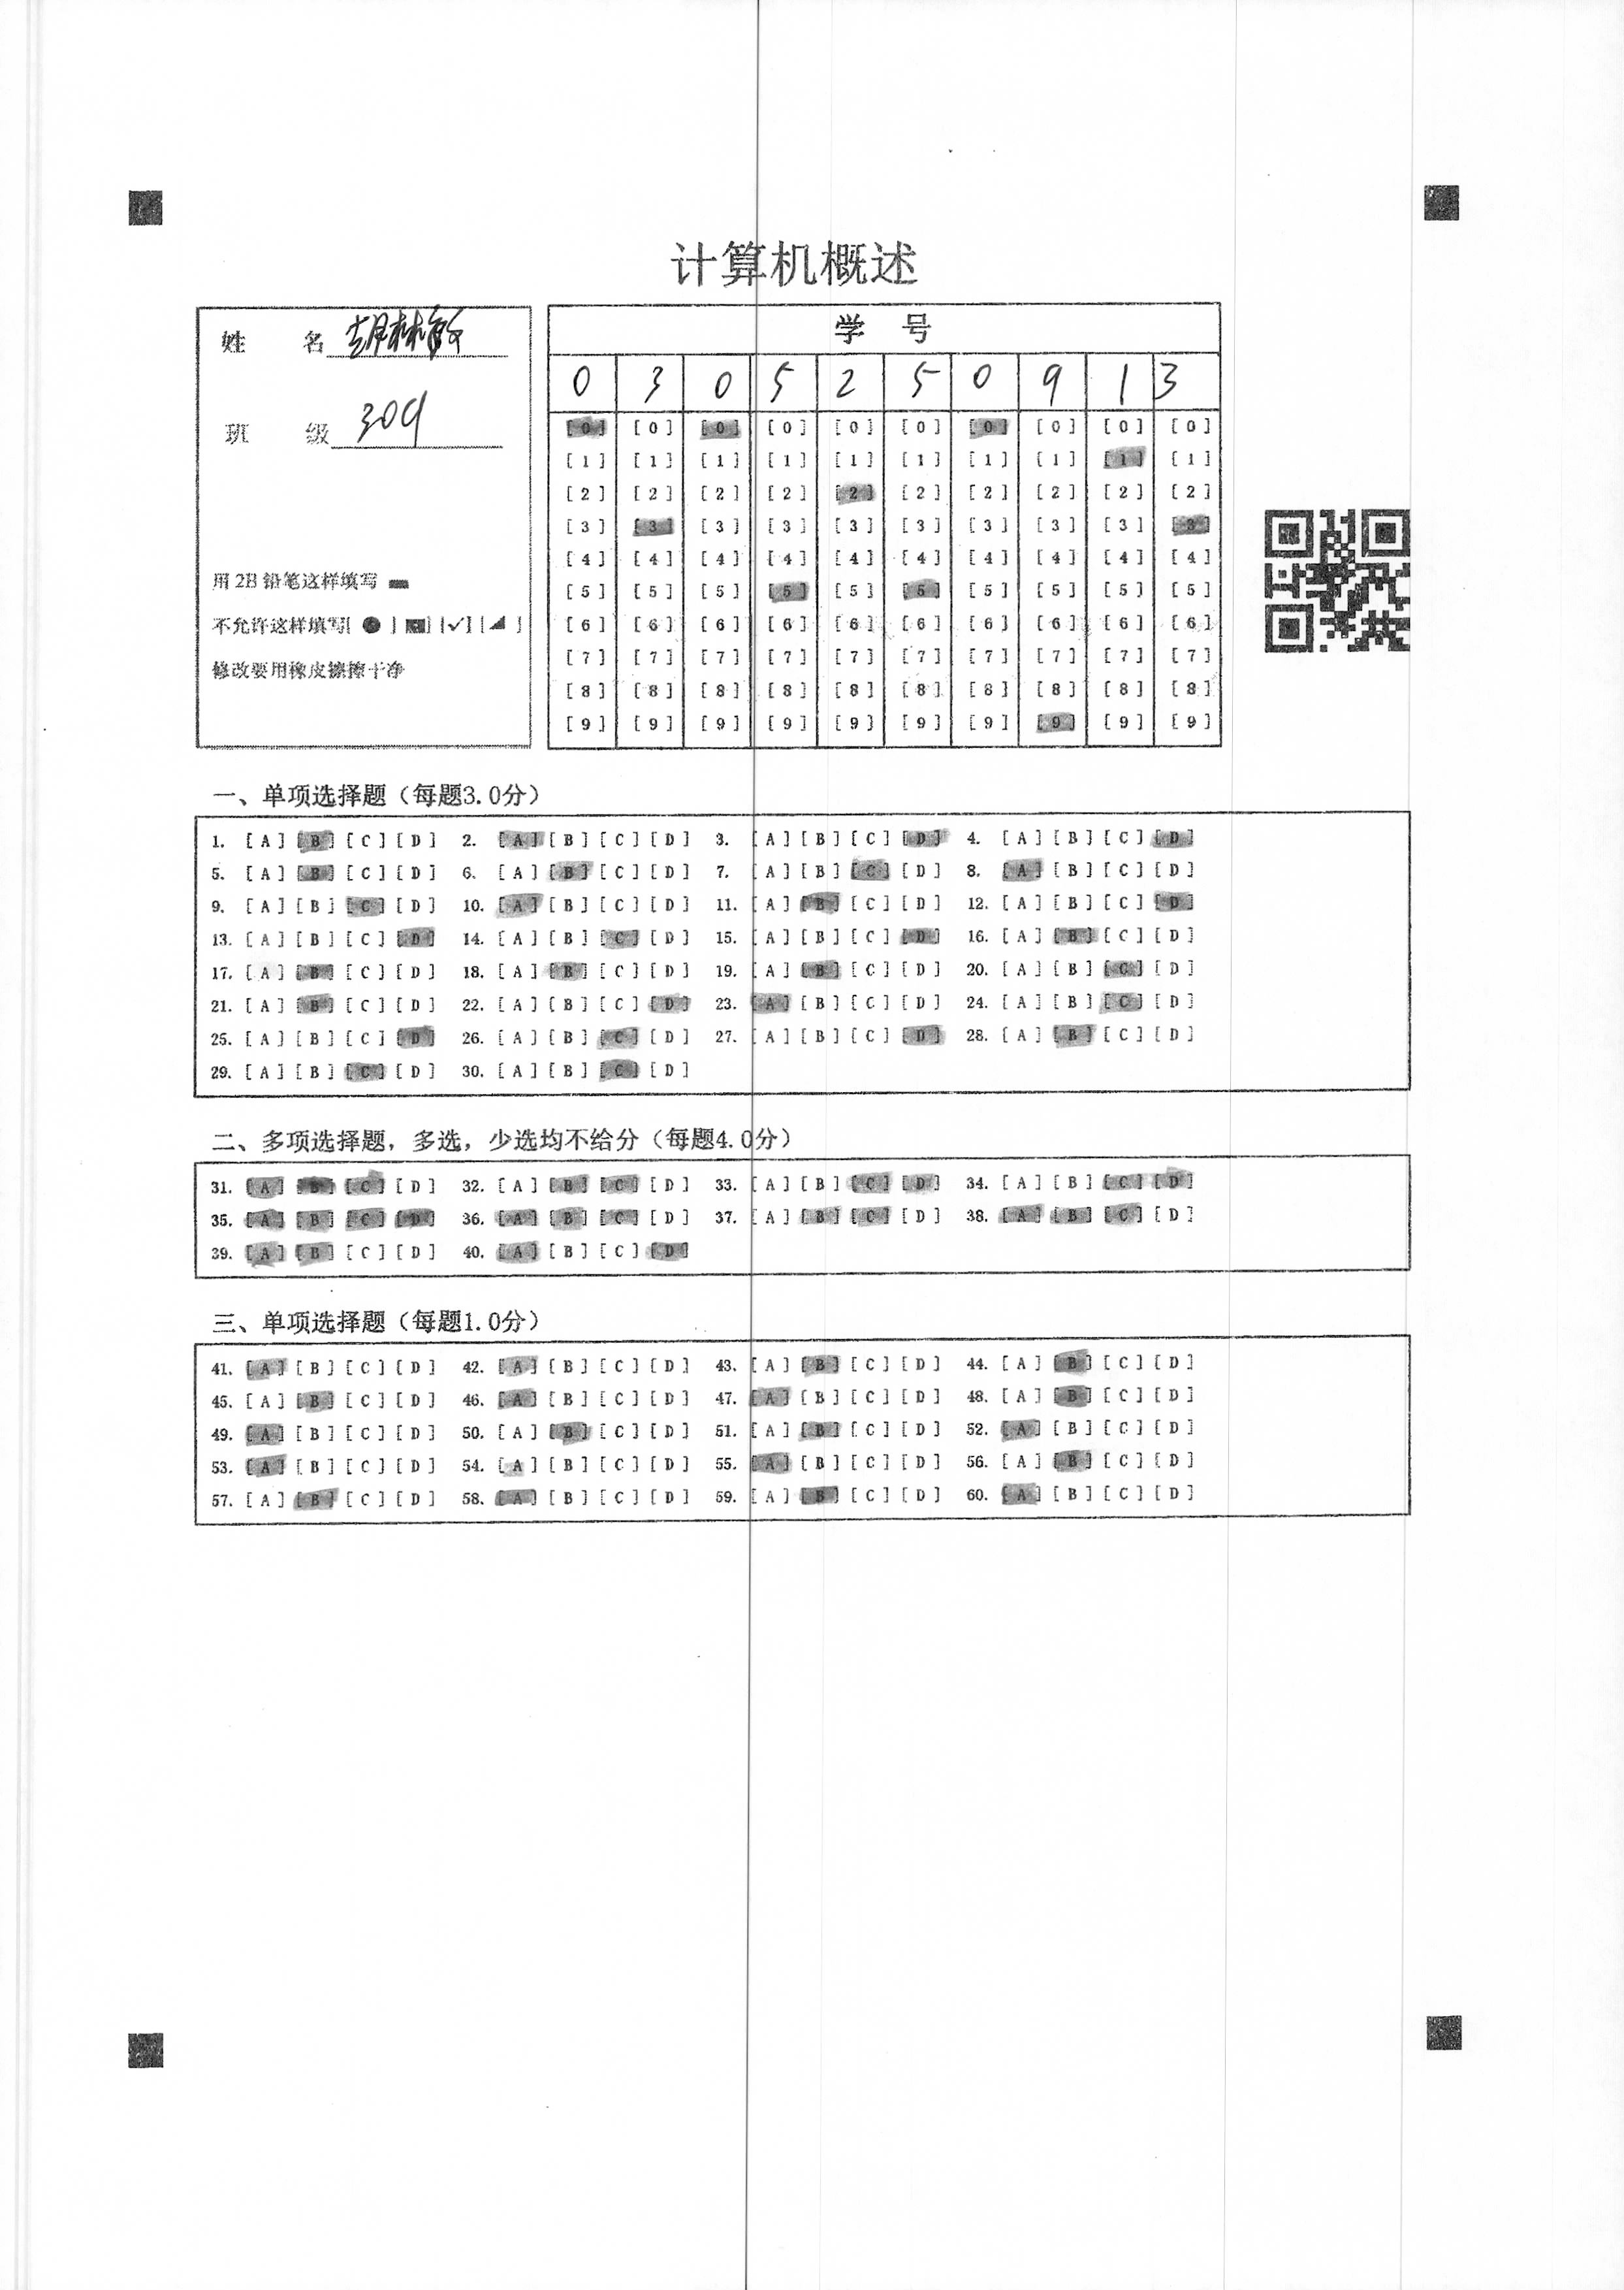 计算机概述
姓 名
班 级 309
用 2B 铅笔这样填写
不允许这样填写[ ● ] [ ] [✓] [ ]
修改要用橡皮擦擦干净
学 号
0 3 0 5 2 5 0 9 1 3
[0] [0] [0] [0] [0] [0] [0] [0] [0] [0]
[1] [1] [1] [1] [1] [1] [1] [1] [1] [1]
[2] [2] [2] [2] [2] [2] [2] [2] [2] [2]
[3] [3] [3] [3] [3] [3] [3] [3] [3] [3]
[4] [4] [4] [4] [4] [4] [4] [4] [4] [4]
[5] [5] [5] [5] [5] [5] [5] [5] [5] [5]
[6] [6] [6] [6] [6] [6] [6] [6] [6] [6]
[7] [7] [7] [7] [7] [7] [7] [7] [7] [7]
[8] [8] [8] [8] [8] [8] [8] [8] [8] [8]
[9] [9] [9] [9] [9] [9] [9] [9] [9] [9]
一、单项选择题（每题3.0分）
1. [A] [B] [C] [D] 2. [A] [B] [C] [D] 3. [A] [B] [C] [D] 4. [A] [B] [C] [D]
5. [A] [B] [C] [D] 6. [A] [B] [C] [D] 7. [A] [B] [C] [D] 8. [A] [B] [C] [D]
9. [A] [B] [C] [D] 10. [A] [B] [C] [D] 11. [A] [B] [C] [D] 12. [A] [B] [C] [D]
13. [A] [B] [C] [D] 14. [A] [B] [C] [D] 15. [A] [B] [C] [D] 16. [A] [B] [C] [D]
17. [A] [B] [C] [D] 18. [A] [B] [C] [D] 19. [A] [B] [C] [D] 20. [A] [B] [C] [D]
21. [A] [B] [C] [D] 22. [A] [B] [C] [D] 23. [A] [B] [C] [D] 24. [A] [B] [C] [D]
25. [A] [B] [C] [D] 26. [A] [B] [C] [D] 27. [A] [B] [C] [D] 28. [A] [B] [C] [D]
29. [A] [B] [C] [D] 30. [A] [B] [C] [D]
二、多项选择题，多选，少选均不给分（每题4.0分）
31. [A] [B] [C] [D] 32. [A] [B] [C] [D] 33. [A] [B] [C] [D] 34. [A] [B] [C] [D]
35. [A] [B] [C] [D] 36. [A] [B] [C] [D] 37. [A] [B] [C] [D] 38. [A] [B] [C] [D]
39. [A] [B] [C] [D] 40. [A] [B] [C] [D]
三、单项选择题（每题1.0分）
41. [A] [B] [C] [D] 42. [A] [B] [C] [D] 43. [A] [B] [C] [D] 44. [A] [B] [C] [D]
45. [A] [B] [C] [D] 46. [A] [B] [C] [D] 47. [A] [B] [C] [D] 48. [A] [B] [C] [D]
49. [A] [B] [C] [D] 50. [A] [B] [C] [D] 51. [A] [B] [C] [D] 52. [A] [B] [C] [D]
53. [A] [B] [C] [D] 54. [A] [B] [C] [D] 55. [A] [B] [C] [D] 56. [A] [B] [C] [D]
57. [A] [B] [C] [D] 58. [A] [B] [C] [D] 59. [A] [B] [C] [D] 60. [A] [B] [C] [D]